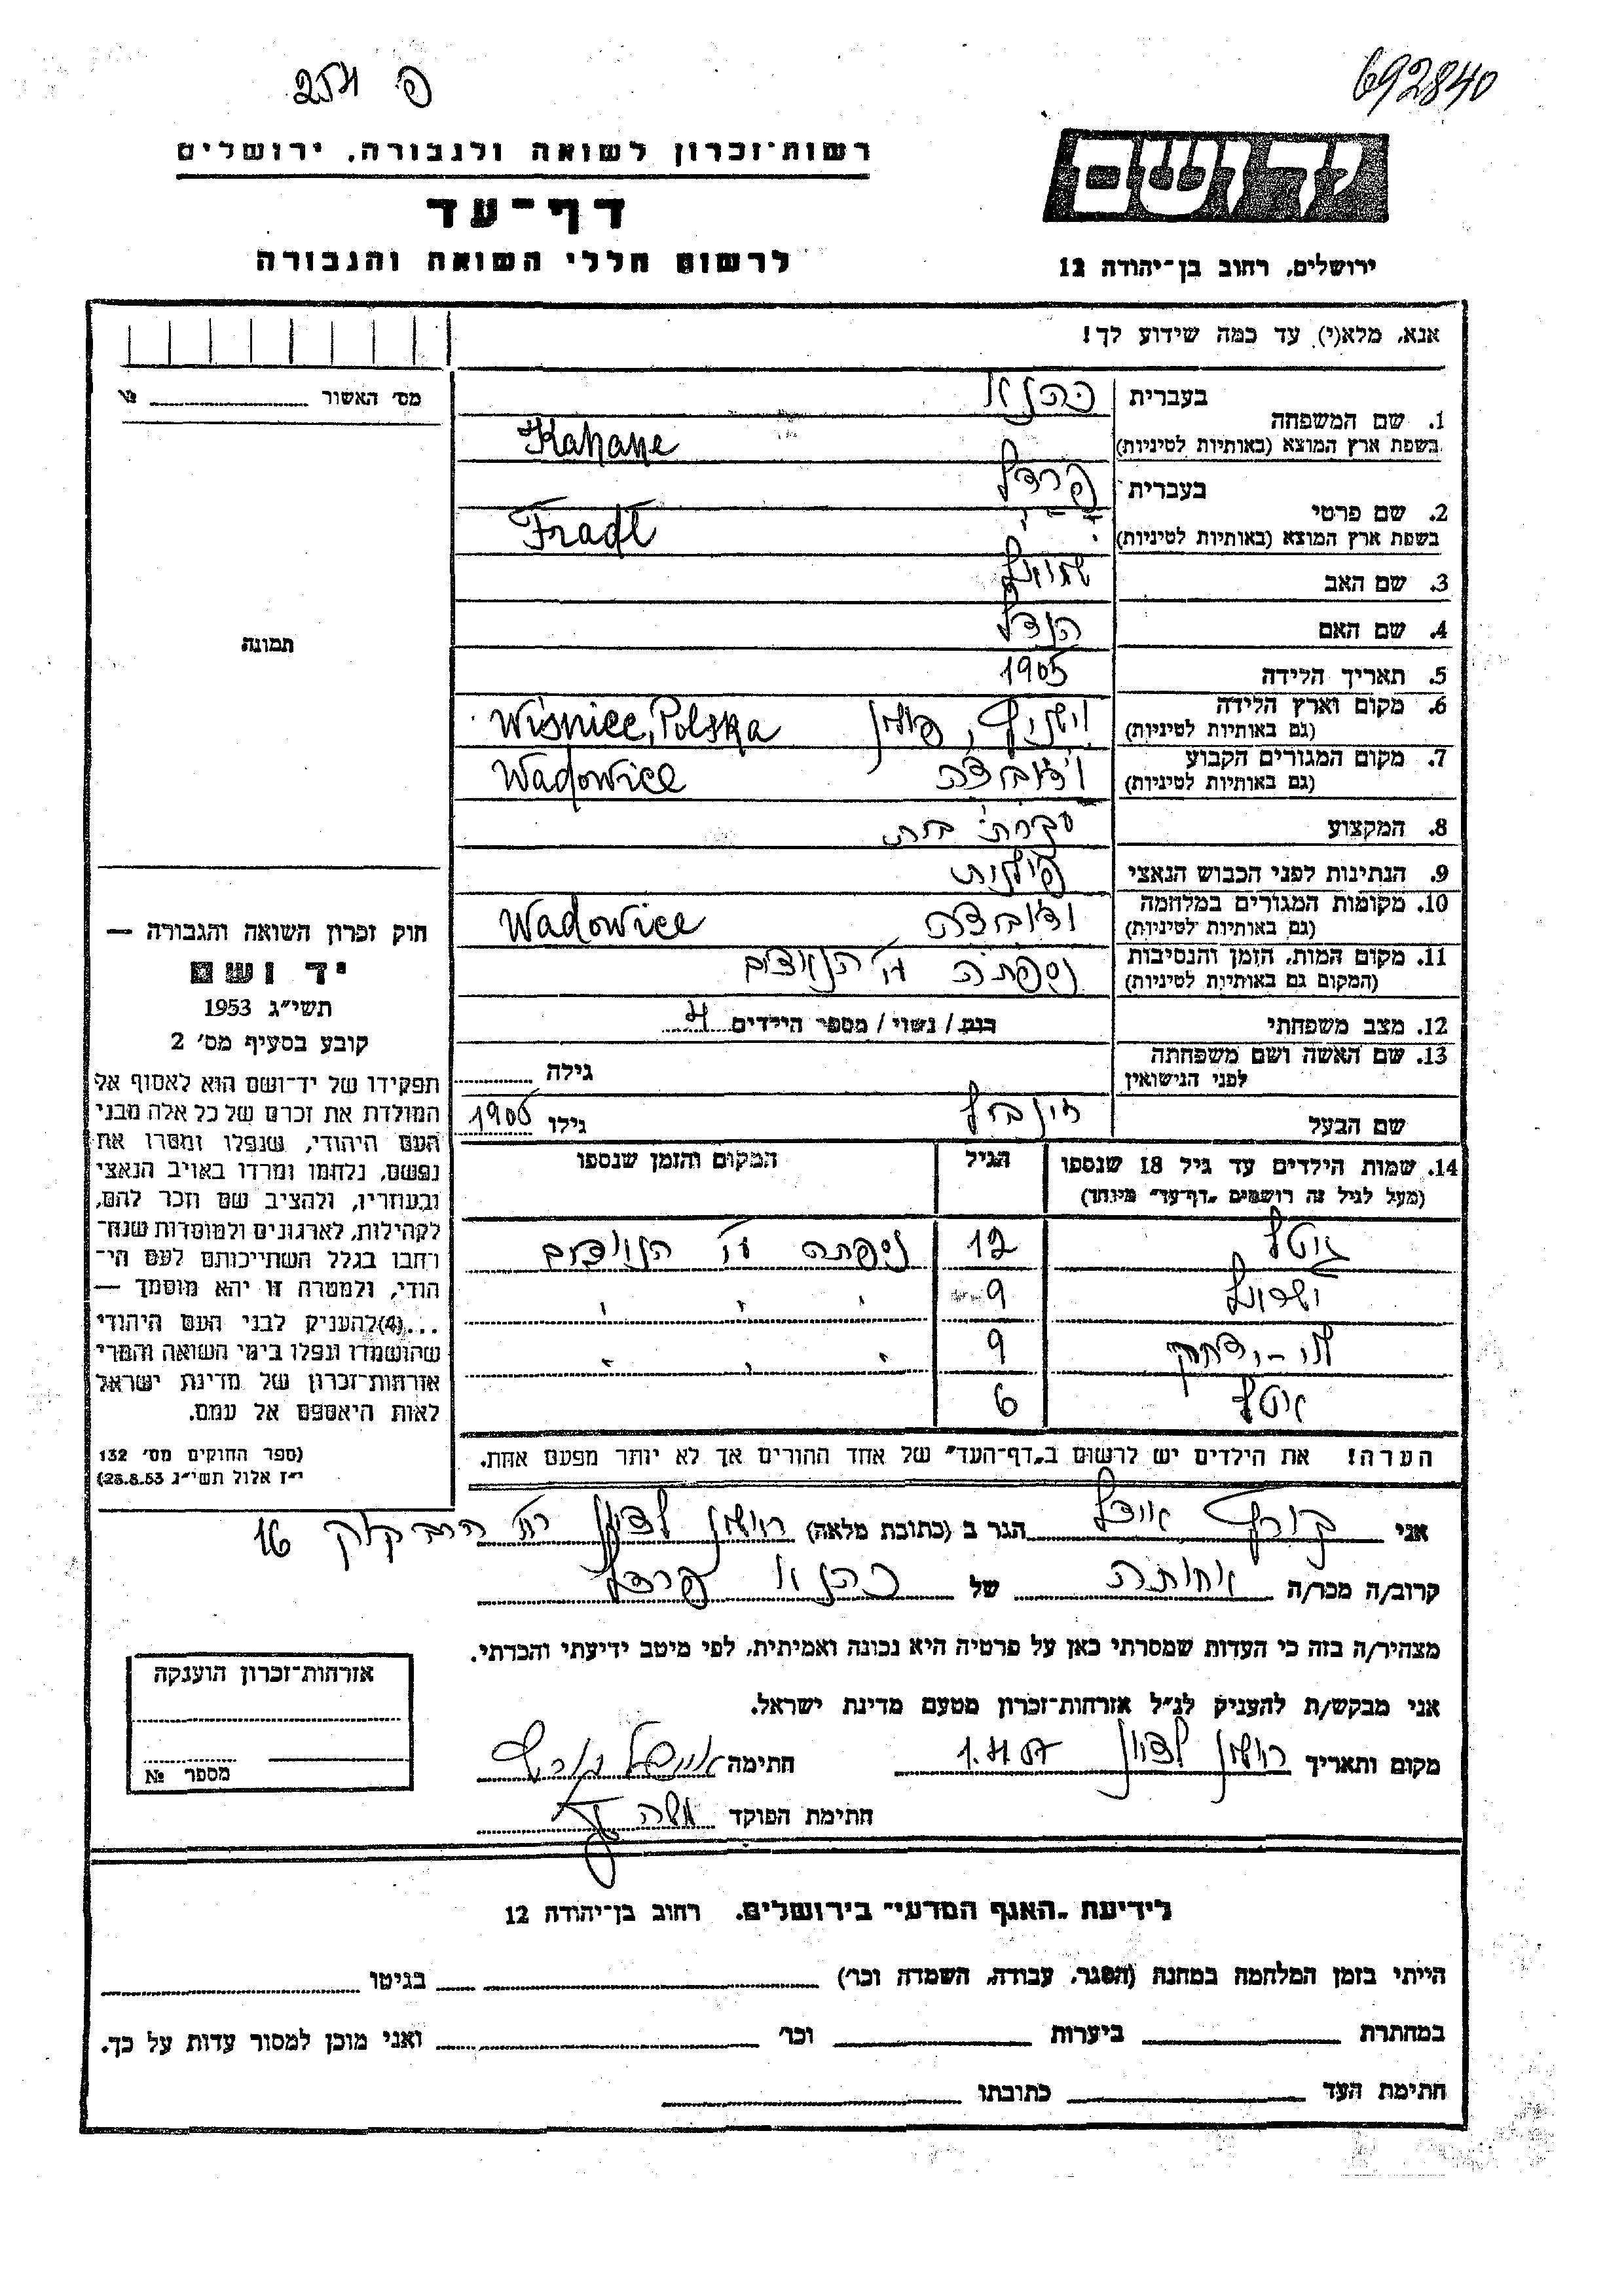 692840
פ 254
יד ושם
ירושלים, רחוב בן-יהודה 12
רשות-זכרון לשואה ולגבורה, ירושלים
דף-עד
לרשום חללי השואה והגבורה
אנא, מלא(י) עד כמה שידוע לך!
מס׳ האשור № 
1. שם המשפחה בעברית כהנא
בשפת ארץ המוצא (באותיות לטיניות) Kahane
2. שם פרטי בעברית פרדל
בשפת ארץ המוצא (באותיות לטיניות) Fradl
3. שם האב שמואל
4. שם האם הנדל
5. תאריך הלידה 1905
6. מקום וארץ הלידה (גם באותיות לטיניות) וישניץ, פולין Wiśnice, Polska
7. מקום המגורים הקבוע (גם באותיות לטיניות) Wadowice
8. המקצוע עקרת בית
9. הנתינות לפני הכבוש הנאצי פולנית
10. מקומות המגורים במלחמה (גם באותיות לטיניות) Wadowice
11. מקום המות, הזמן והנסיבות (המקום גם באותיות לטיניות) נספתה ע״י הנאצים
12. מצב משפחתי רווק / נשוי / מספר הילדים 4
13. שם האשה ושם משפחתה לפני הנישואין גילה
שם הבעל גילו 1906
14. שמות הילדים עד גיל 18 שנספו
(מעל לגיל זה רושמים „דף-עד״ מיוחד)
הגיל
המקום והזמן שנספו
גיטל 12 ניספתה ע״י הנאצים
9 " " "
9 " " "
6
הערה! את הילדים יש לרשום ב„דף-העד״ של אחד ההורים אך לא יותר מפעם אחת.
תמונה
חוק זכרון השואה והגבורה —
יד ושם
תשי״ג 1953
קובע בסעיף מס׳ 2
תפקידו של יד-ושם הוא לאסוף אל
המולדת את זכרם של כל אלה מבני
העם היהודי, שנפלו ומסרו את
נפשם, נלחמו ומרדו באויב הנאצי
ובעוזריו, ולהציב שם וזכר להם,
לקהילות, לארגונים ולמוסדות שנח-
רחבו בגלל השתייכותם לעם הי-
הודי, ולמטרה זו יהא מוסמך —
...(4)להעניק לבני העם היהודי
שהושמדו ונפלו בימי השואה והמרי
אזרחות-זכרון של מדינת ישראל
לאות היאספם אל עמם.
(ספר החוקים מס׳ 132
י״ז אלול תשי״ג 28.8.53)
אני הגר ב (כתובת מלאה) ראשון לציון רח׳ הרב קוק 16
קרוב/ה מכר/ה אחותה של כהנא פרדל
מצהיר/ה בזה כי העדות שמסרתי כאן על פרטיה היא נכונה ואמיתית, לפי מיטב ידיעתי והכרתי.
אני מבקש/ת להעניק לנ״ל אזרחות-זכרון מטעם מדינת ישראל.
מקום ותאריך ראשון לציון חתימה
חתימת הפוקד משה
אזרחות-זכרון הוענקה
מספר №
לידיעת „האגף המדעי״ בירושלים, רחוב בן-יהודה 12
הייתי בזמן המלחמה במחנה (הסגר, עבודה, השמדה וכו׳) בגיטו
במחתרת ביערות וכו׳ ואני מוכן למסור עדות על כך.
חתימת העד כתובתו